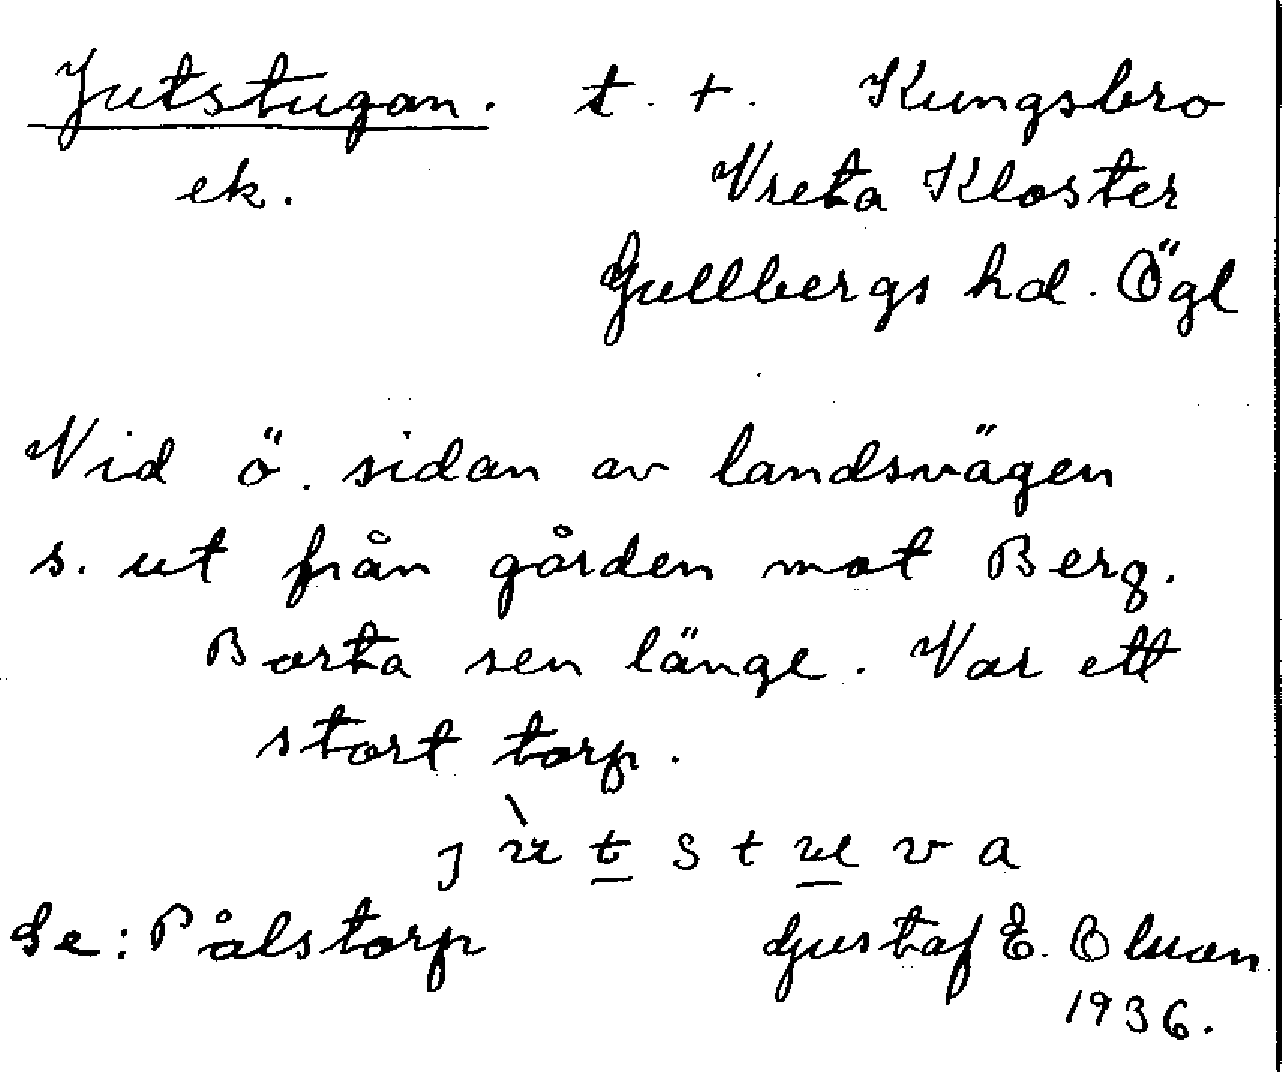 Jutstugan. t. t. Kungsbro
ek. Vreta Kloster
Gullbergs hd. Ögl
Vid ö. sidan av landsvägen
s. ut från gården mot Berg.
Borta sen länge. Var ett
stort torp.
j ù t s t u v a
Se: Pålstorp Gustaf E. Olsson
1936.